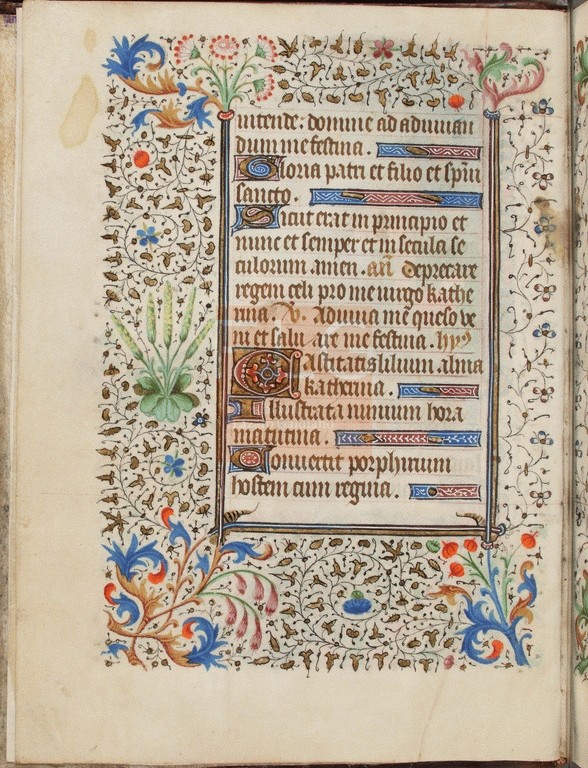 intende. domine ad adiuuan
dum me festina.
Gloria patri et filio et spiri
sancto.
Sicut erat in principio et
nunc et semper et in secula se
culorum amen. añ Deprecare
regem celi pro me uirgo kathe
rina. V. Adiuua me queso ve
ni et salu are me festina. hỹ⁹
Castitatis lilium alma
katherina.
Illustrata nimium hora
matutina.
Conuertit porphirium
hostem cum regina.